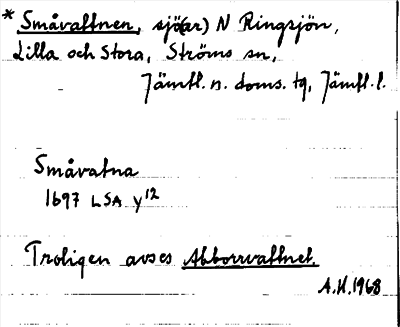 * Småvattnen, sjö(ar) N Ringsjön,
Lilla och Stora, Ströms sn,
Jämtl. n. doms. tg, Jämtl. l.
Småvatna
1697 LSA Y12
Troligen avses Abborrvattnet.
A.H. 1968